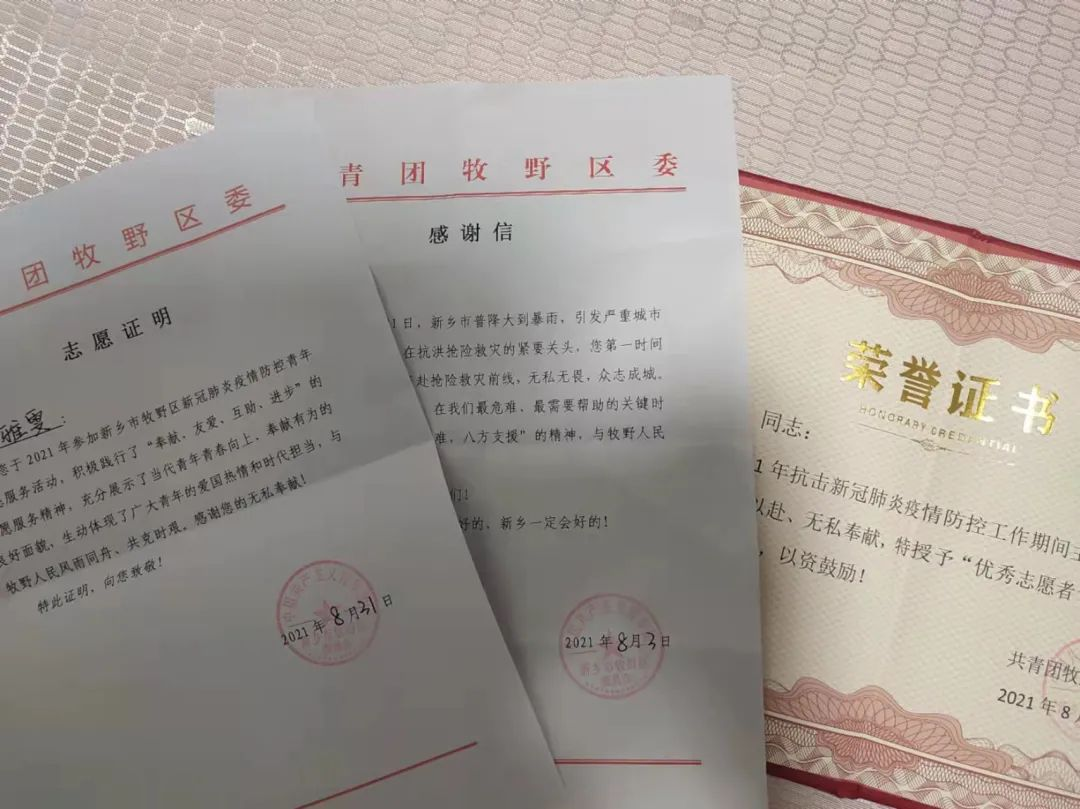 团牧野区委
志愿证明
雅雯：
您于2021年参加新乡市牧野区新冠肺炎疫情防控青年
服务活动，积极践行了“奉献、友爱、互助、进步”的
愿服务精神，充分展示了当代青年青春向上、奉献有为的
良好面貌，生动体现了广大青年的爱国热情和时代担当，与
牧野人民风雨同舟、共克时艰。感谢您的无私奉献！
特此证明，向您致敬！
2021年8月31日
青团牧野区委
感谢信
1日，新乡市普降大到暴雨，引发严重城市
在抗洪抢险救灾的紧要关头，您第一时间
赴抢险救灾前线，无私无畏，众志成城。
在我们最危难、最需要帮助的关键时
难，八方支援”的精神，与牧野人民
们！
好的、新乡一定会好的！
2021年8月3日
荣誉证书
HONORARY CREDENTIAL
同志：
1年抗击新冠肺炎疫情防控工作期间
以赴、无私奉献，特授予“优秀志愿者
，以资鼓励！
共青团牧
2021年8